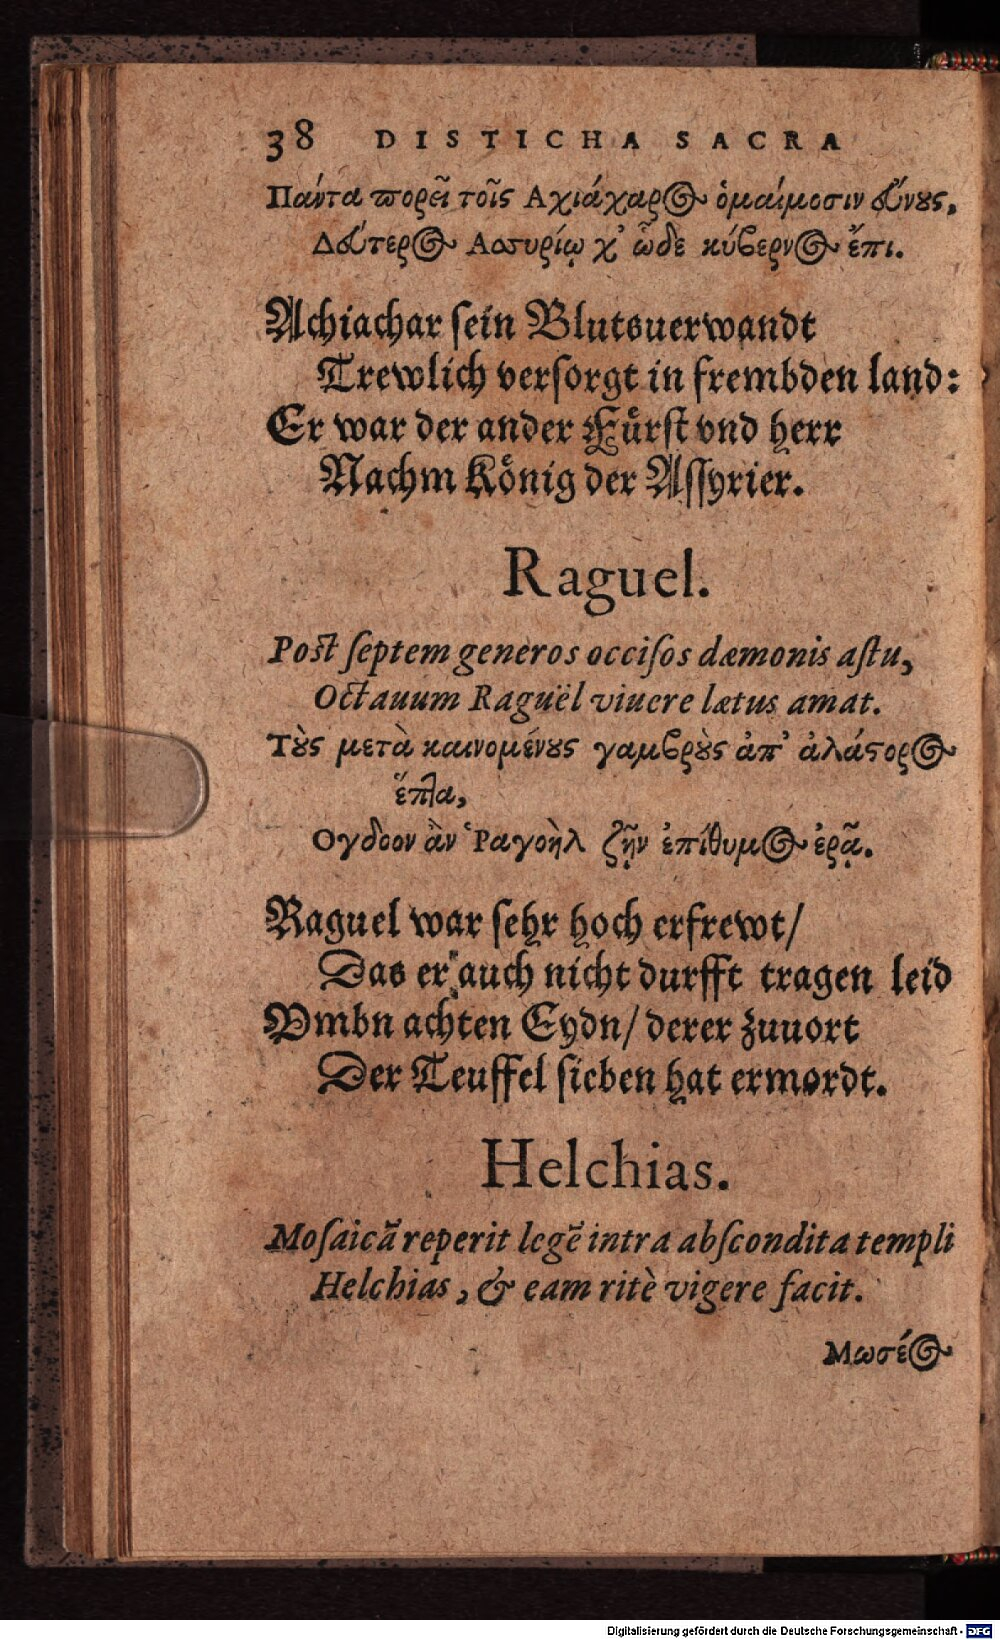 38 DISTICHA SACRA
Πάντα πορεῖ τοῖς Αχιάχαρος ὁμαίμοσιν εύνους,
Δεύτερος Ασσυρίῳ χ' ὧδε κύβερνος ἔπι.
Achiachar sein Blutsuerwandt
Trewlich versorgt in frembden land:
Er war der ander Fürst vnd herr
Nachm König der Assyrier.
Raguel.
Post septem generos occisos dæmonis astu,
Octauum Raguël viuere lætus amat.
Τοὺς μετὰ καινομένους γαμβροὺς ἀπ' ἀλάστορος
ἕπτα,
Ογδοον ἂν Ῥαγοὴλ ζῇν ἐπίθυμος ἐρᾷ.
Raguel war sehr hoch erfrewt/
Das er auch nicht durfft tragen leid
Vmbn achten Eydn/ derer zuuort
Der Teuffel sieben hat ermordt.
Helchias.
Mosaicã reperit legẽ intra abscondita templi
Helchias, & eam ritè vigere facit.
Μωσέος
Digitalisierung gefördert durch die Deutsche Forschungsgemeinschaft - DFG